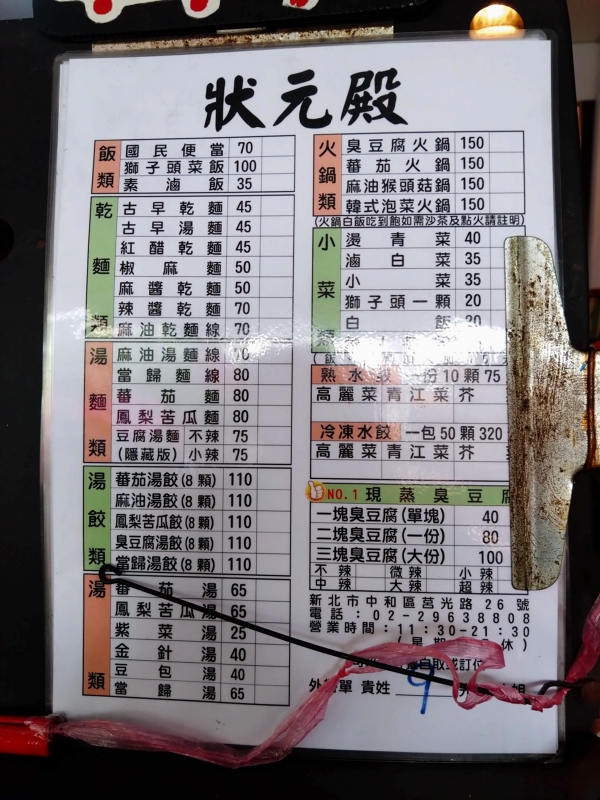 狀元殿
飯類
國民便當 70
獅子頭菜飯 100
素滷飯 35
乾麵類
古早乾麵 45
古早湯麵 45
紅醋乾麵 45
椒麻麵 50
麻醬乾麵 50
辣醬乾麵 70
麻油乾麵線 70
湯麵類
麻油湯麵線 70
當歸麵線 80
蕃茄麵 80
鳳梨苦瓜麵 80
豆腐湯麵 不辣 75
(隱藏版) 小辣 75
湯餃類
蕃茄湯餃(8顆) 110
麻油湯餃(8顆) 110
鳳梨苦瓜餃(8顆) 110
臭豆腐湯餃(8顆) 110
當歸湯餃(8顆) 110
湯類
蕃茄湯 65
鳳梨苦瓜湯 65
紫菜湯 25
金針湯 40
豆包湯 40
當歸湯 65
火鍋類
臭豆腐火鍋 150
蕃茄火鍋 150
麻油猴頭菇鍋 150
韓式泡菜火鍋 150
(火鍋白飯吃到飽如需沙茶及點火請註明)
小菜
燙青菜 40
滷白菜 35
小菜 35
獅子頭一顆 20
白飯 20
熟水餃 一份10顆 75
高麗菜 青江菜 芥
冷凍水餃 一包50顆 320
高麗菜 青江菜 芥
NO.1 現蒸臭豆腐
一塊臭豆腐(單塊) 40
二塊臭豆腐(一份) 80
三塊臭豆腐(大份) 100
不辣 微辣 小辣
中辣 大辣 超辣
新北市中和區莒光路26號
電話:02-29638808
營業時間:11:30-21:30
(星期 休)
自取或訂位
外 單 貴姓 9 姐